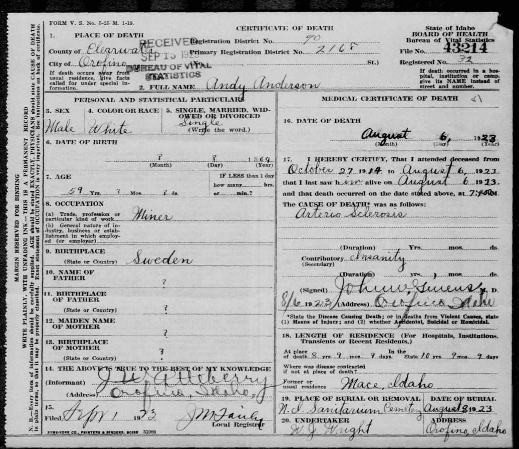 FORM V. S. No. 5-25 M. 1-19.
CERTIFICATE OF DEATH
State of Idaho
BOARD OF HEALTH
Bureau of Vital Statistics
File No. 43214
Registered No. 32
If death occurred in a hospital, institution or camp, give its NAME instead of street and number.
1. PLACE OF DEATH
County of Clearwater
City of Orofino
If death occurs away from usual residence, give facts called for under special information.
RECEIVED
SEP 15
BUREAU OF VITAL STATISTICS
Registration District No. 90
Primary Registration District No. 2168
St.)
2. FULL NAME Andy Anderson
PERSONAL AND STATISTICAL PARTICULARS
3. SEX
Male
4. COLOR OR RACE
White
5. SINGLE, MARRIED, WIDOWED OR DIVORCED
Single
(Write the word.)
6. DATE OF BIRTH
? ?
(Month) (Day) (Year)
7. AGE
59 Yrs. ? Mos. ? ds.
IF LESS than 1 day
how many hrs.
or min.?
8. OCCUPATION
(a) Trade, profession or particular kind of work
Miner
(b) General nature of industry, business or establishment in which employed (or employer)
9. BIRTHPLACE
(State or Country) Sweden
10. NAME OF FATHER ?
11. BIRTHPLACE OF FATHER
(State or Country) ?
12. MAIDEN NAME OF MOTHER ?
13. BIRTHPLACE OF MOTHER
(State or Country) ?
14. THE ABOVE IS TRUE TO THE BEST OF MY KNOWLEDGE
(Informant) J. W. Atteberry
(Address) Orofino, Idaho
15.
Local Registrar
MEDICAL CERTIFICATE OF DEATH
16. DATE OF DEATH
August 6, 1923
(Month) (Day) (Year)
17. I HEREBY CERTIFY, That I attended deceased from
October 27 1914 to August 6, 1923
that I last saw him alive on August 6 1923
and that death occurred on the date stated above, at
The CAUSE OF DEATH was as follows:
Arterio Sclerosis
(Duration) Yrs. mos. ds.
Contributory Insanity
(Secondary)
(Duration) Yrs. mos. ds.
(Signed) M. D.
8/6 1923 (Address) Orofino, Idaho
*State the Disease Causing Death; or in Deaths from Violent Causes, state (1) Means of Injury; and (2) whether Accidental, Suicidal or Homicidal.
18. LENGTH OF RESIDENCE (For Hospitals, Institutions, Transients or Recent Residents.)
At place of death 8 yrs. 9 mos. 9 days. State 10 yrs. 9 mos. 9
Where was disease contracted if not at place of death?
Former or usual residence Mace, Idaho
19. PLACE OF BURIAL OR REMOVAL
N. I. Sanitarium Cemetery
DATE OF BURIAL
August 8 1923
20. UNDERTAKER
Wright
ADDRESS
Orofino, Idaho
MARGIN RESERVED FOR BINDING
WRITE PLAINLY, WITH UNFADING INK—THIS IS A PERMANENT RECORD